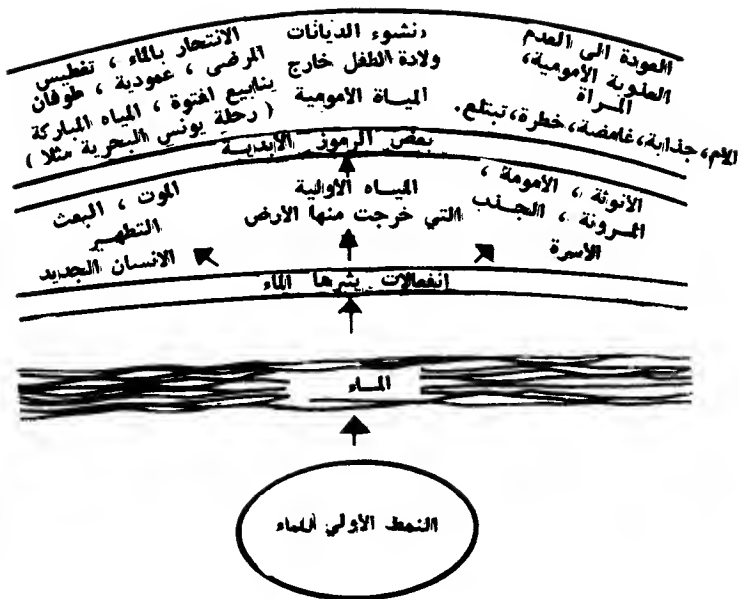 العودة الى العدم
العذوبة الأمومية،
المرأة
الأم، جذابة، غامضة، خطرة، تبتلع.
نشوء الديانات
ولادة الطفل خارج
المياة الأمومية
الانتحار بالماء ، تغطيس
المرضى ، عمودية ، طوفان
ينابيع الفتوة ، المياه المباركة
( رحلة يونس البحرية مثلا )
بعض الرموز الأبدية
الأنوثة ، الأمومة ،
المرونة ، الجذب
الأسرة
المياه الأولية
التي خرجت منها الأرض
الموت ، البعث
التطهير
الانسان الجديد
إنفعالات يثيرها الماء
الماء
النمط الأولي للماء